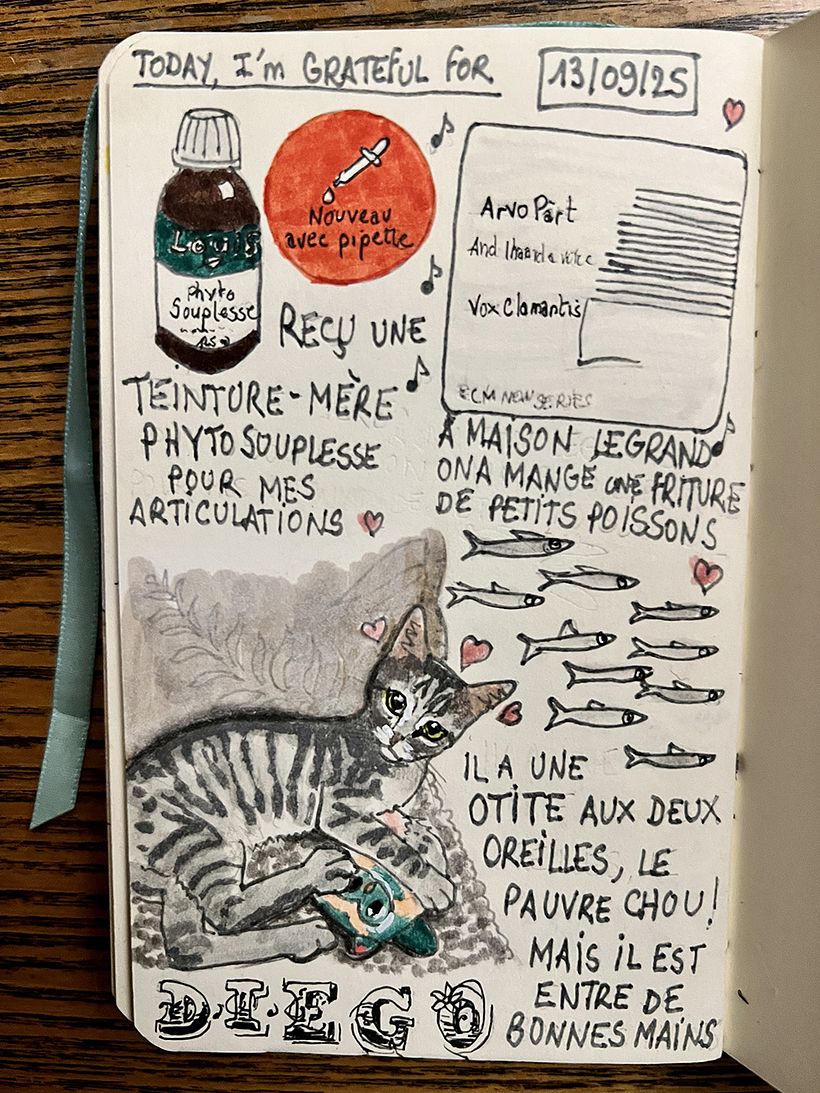 TODAY, I'm GRATEFUL FOR
13/09/25
Louis
Phyto
Souplesse
Nouveau
avec pipette
REÇU UNE
TEINTURE-MÈRE
PHYTOSOUPLESSE
POUR MES
ARTICULATIONS
Arvo Pärt
And I heard a voice
Vox Clamantis
ECM NEW SERIES
À MAISON LEGRAND
ON A MANGÉ UNE FRITURE
DE PETITS POISSONS
IL A UNE
OTITE AUX DEUX
OREILLES, LE
PAUVRE CHOU!
MAIS IL EST
ENTRE DE
BONNES MAINS
DIEGO